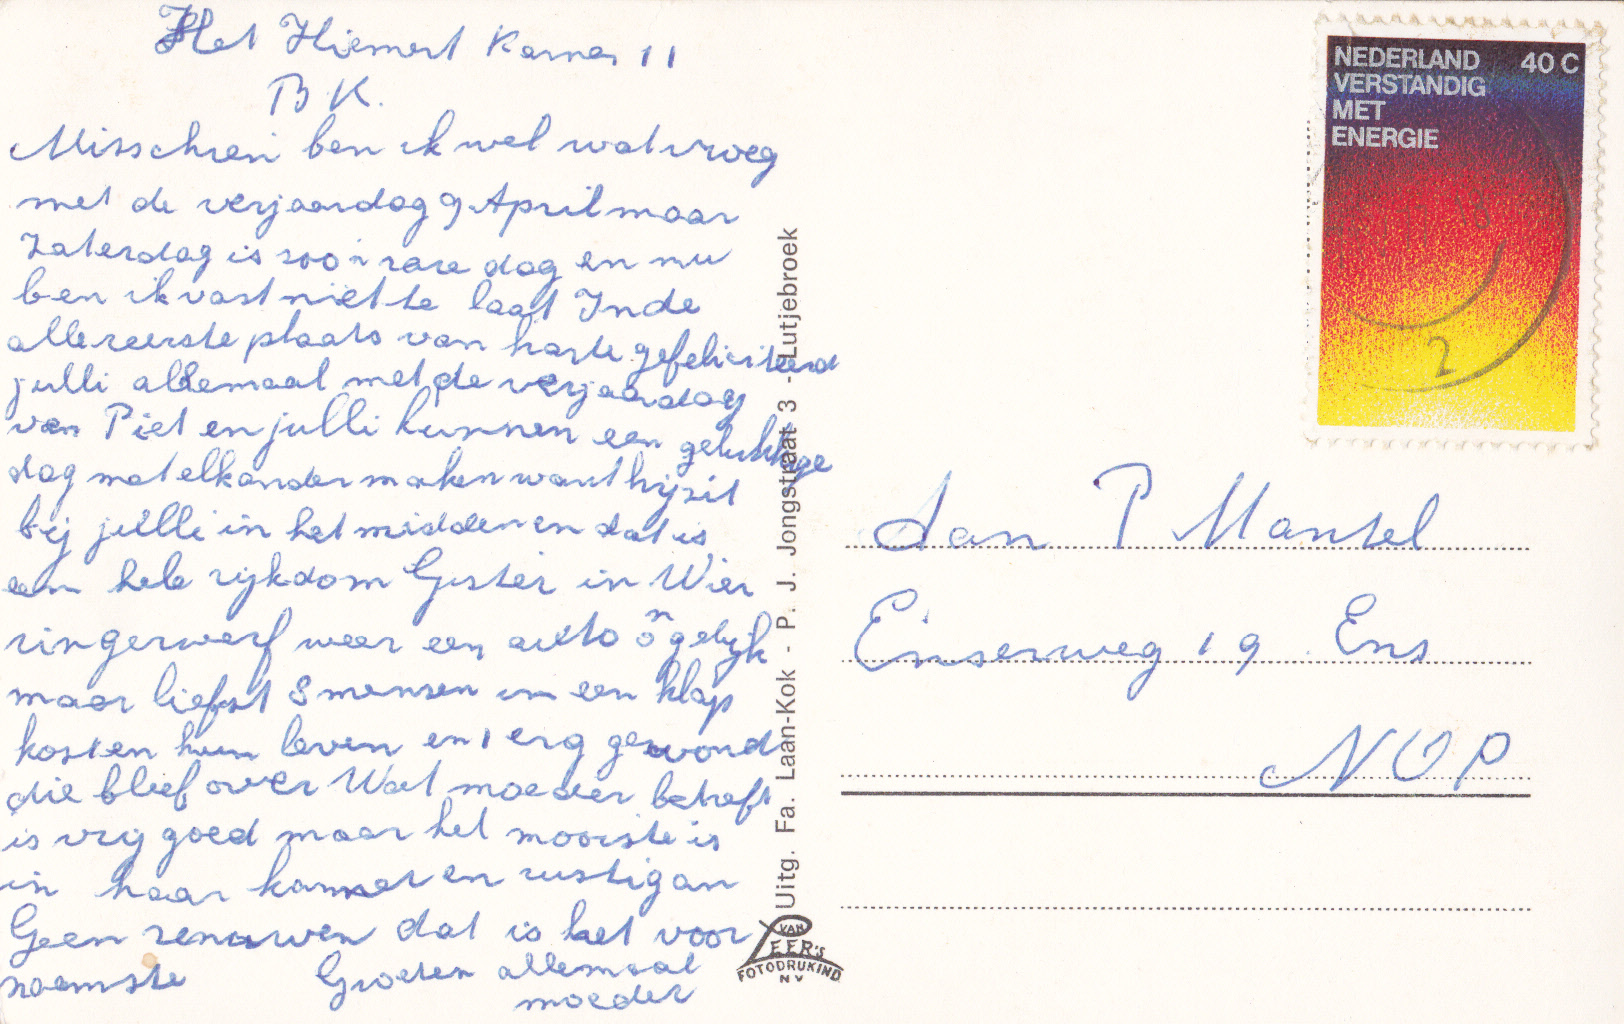 Het Hiemert Kamer 11
B K.
Misschien ben ik wel wat vroeg
met de verjaardag 9 April maar
Zaterdag is zoo'n rare dag en nu
ben ik vast niet te laat In de
allereerste plaats van harte gefeliciteerd
julli allemaal met de verjaardag
van Piet en julli kunnen een gelukkige
dag met elkander maken want hij zit
bij julli in het midden en dat is
een hele rijkdom Gister in Wier
ringerwerf weer een auto ongelijk
maar liefst 8 mensen in een klap
kosten hun leven en 1 erg gewond
die bleef over Wat moeder betreft
is vrij goed maar het mooiste is
in haar kamer en rustig an
Geen zenuwen dat is het voor
naamste Groeten allemaal
moeder
Uitg. Fa. Laan-Kok - P. J. Jongstraat 3 - Lutjebroek
VAN
LEER'S
FOTODRUKIND
N V
NEDERLAND 40 C
VERSTANDIG
MET
ENERGIE
2
Aan P Mantel
Enserweg 19 Ens
NOP